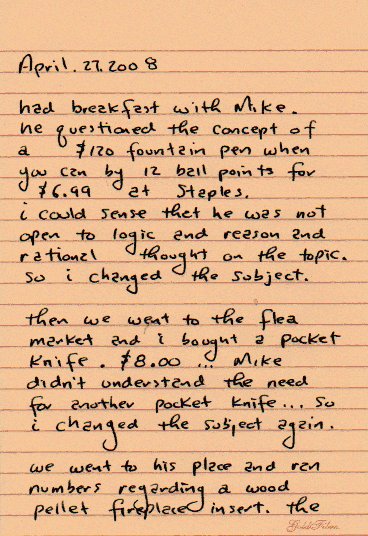 April. 27. 2008
had breakfast with Mike.
he questioned the concept of
a $120 fountain pen when
you can by 12 ball points for
$6.99 at Staples.
i could sense that he was not
open to logic and reason and
rational thought on the topic.
so i changed the subject.
then we went to the flea
market and i bought a pocket
knife. $8.00 ... Mike
didn't understand the need
for another pocket knife... so
i changed the subject again.
we went to his place and ran
numbers regarding a wood
pellet fireplace insert. the